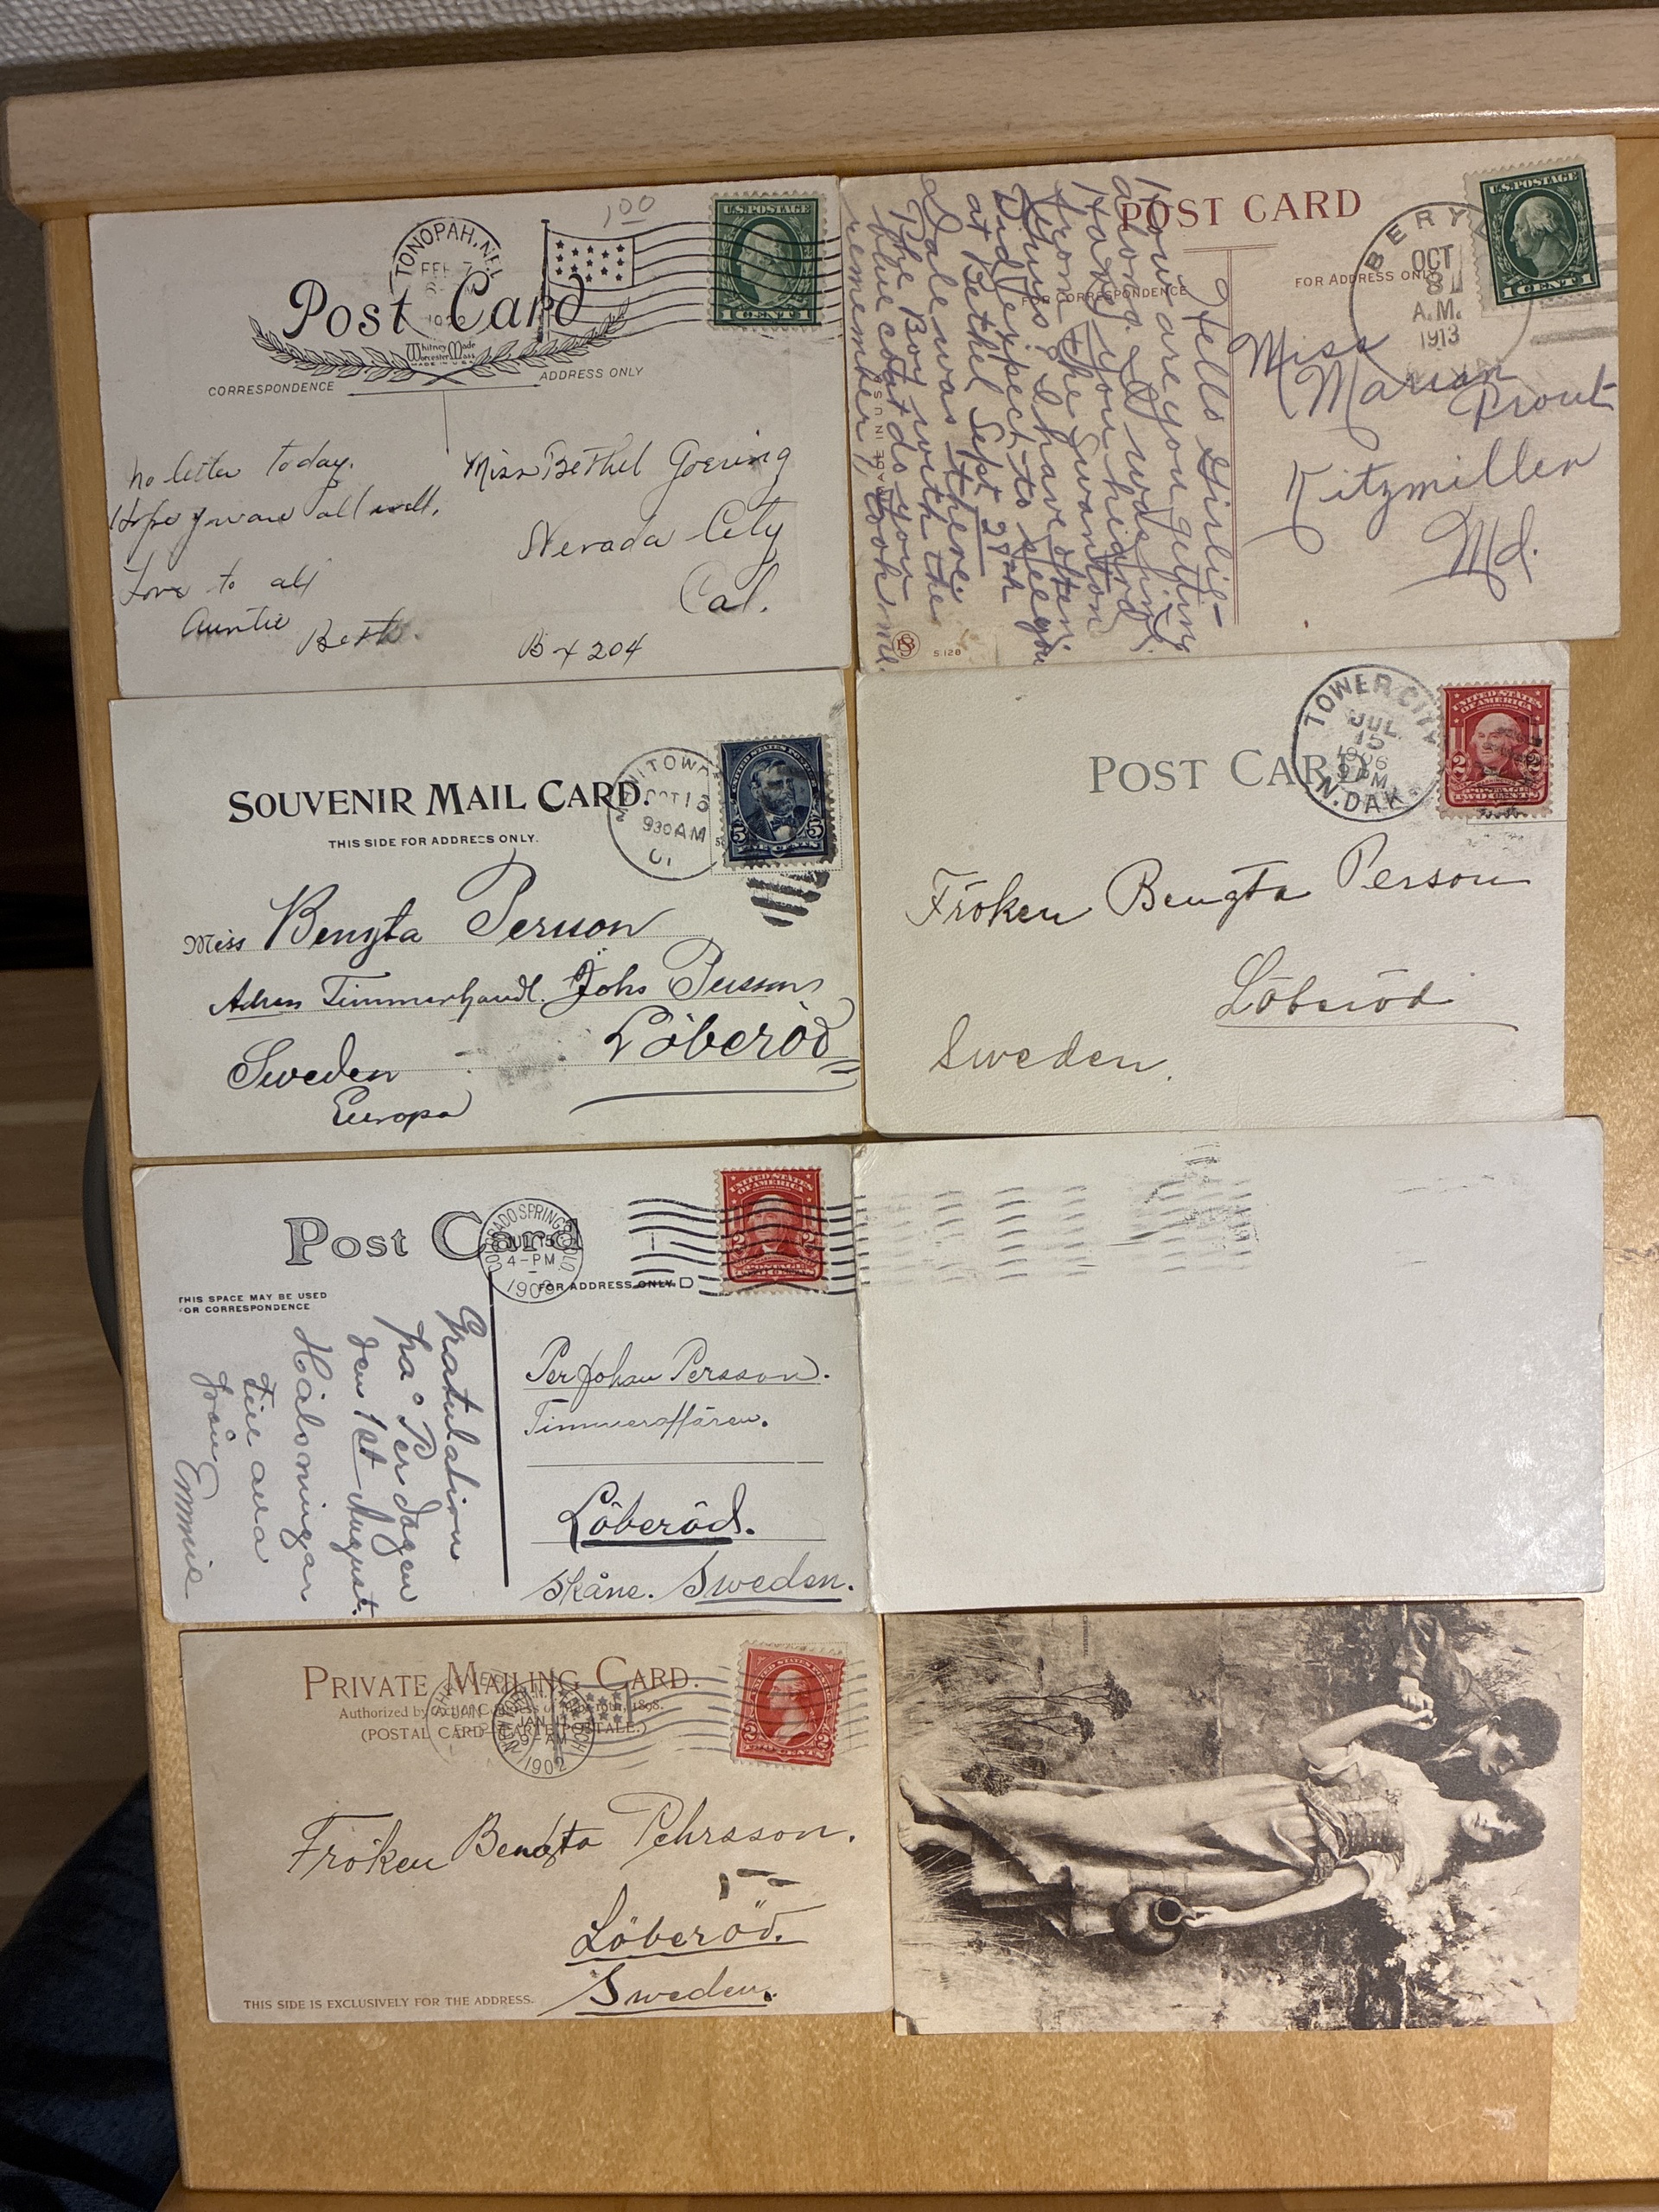 TONOPAH, NEV.
FEB 7
100
U.S. POSTAGE
1 CENT 1
Post Card
Whitney Made
Worcester, Mass
MADE IN U.S.A.
CORRESPONDENCE
ADDRESS ONLY
No letter today.
Hope you are all well.
Love to all
Auntie
Beth.
Miss Bethel Goering
Nevada City
Cal.
Bx 204
POST CARD
FOR CORRESPONDENCE
FOR ADDRESS ONLY
BERY
OCT
8
A.M.
1913
U.S. POSTAGE
1 CENT 1
Hello Girlie-
How are you getting
along. I was
you heard
from the Swanton
I have often
Did expect to see you
at Bethel Sept 27th
Dale was there
The Boy with the
blue coat do you
remember, took me.
MADE IN U.S.A.
S.128
Miss
Marian
Prout
Kitzmiller
Md.
SOUVENIR MAIL CARD.
THIS SIDE FOR ADDRESS ONLY.
MANITOWO
OCT 15
930 AM
01
UNITED STATES POSTAGE
5 5
FIVE CENTS
Miss Bengta Person
Adress Timmerhandl. Johs Persson
Löberöd
Sweden
Europa
POST CARD
TOWER CITY
JUL
15
1906
PM
N. DAK.
UNITED STATES
OF AMERICA
2 2
POSTAGE
TWO CENTS
Fröken Bengta Person
Löberöd
Sweden.
Post Card
COLORADO SPRINGS COLO
JUL 15
4-PM
190
D
UNITED STATES
OF AMERICA
2 2
THIS SPACE MAY BE USED
FOR CORRESPONDENCE
FOR ADDRESS ONLY
Gratulation
på Per dagen
den 1st August.
Hälsningar
från Emmie
Per Johan Persson.
Timmeraffären.
Löberöd.
Skåne. Sweden.
PRIVATE MAILING CARD.
Authorized by Act of Congress of 1898.
(POSTAL CARD-CARTE POSTALE.)
JAN 11
9-AM
1902
UNITED STATES POSTAGE
2 2
TWO CENTS
Fröken Bengta Pehrsson.
Löberöd.
Sweden.
THIS SIDE IS EXCLUSIVELY FOR THE ADDRESS.